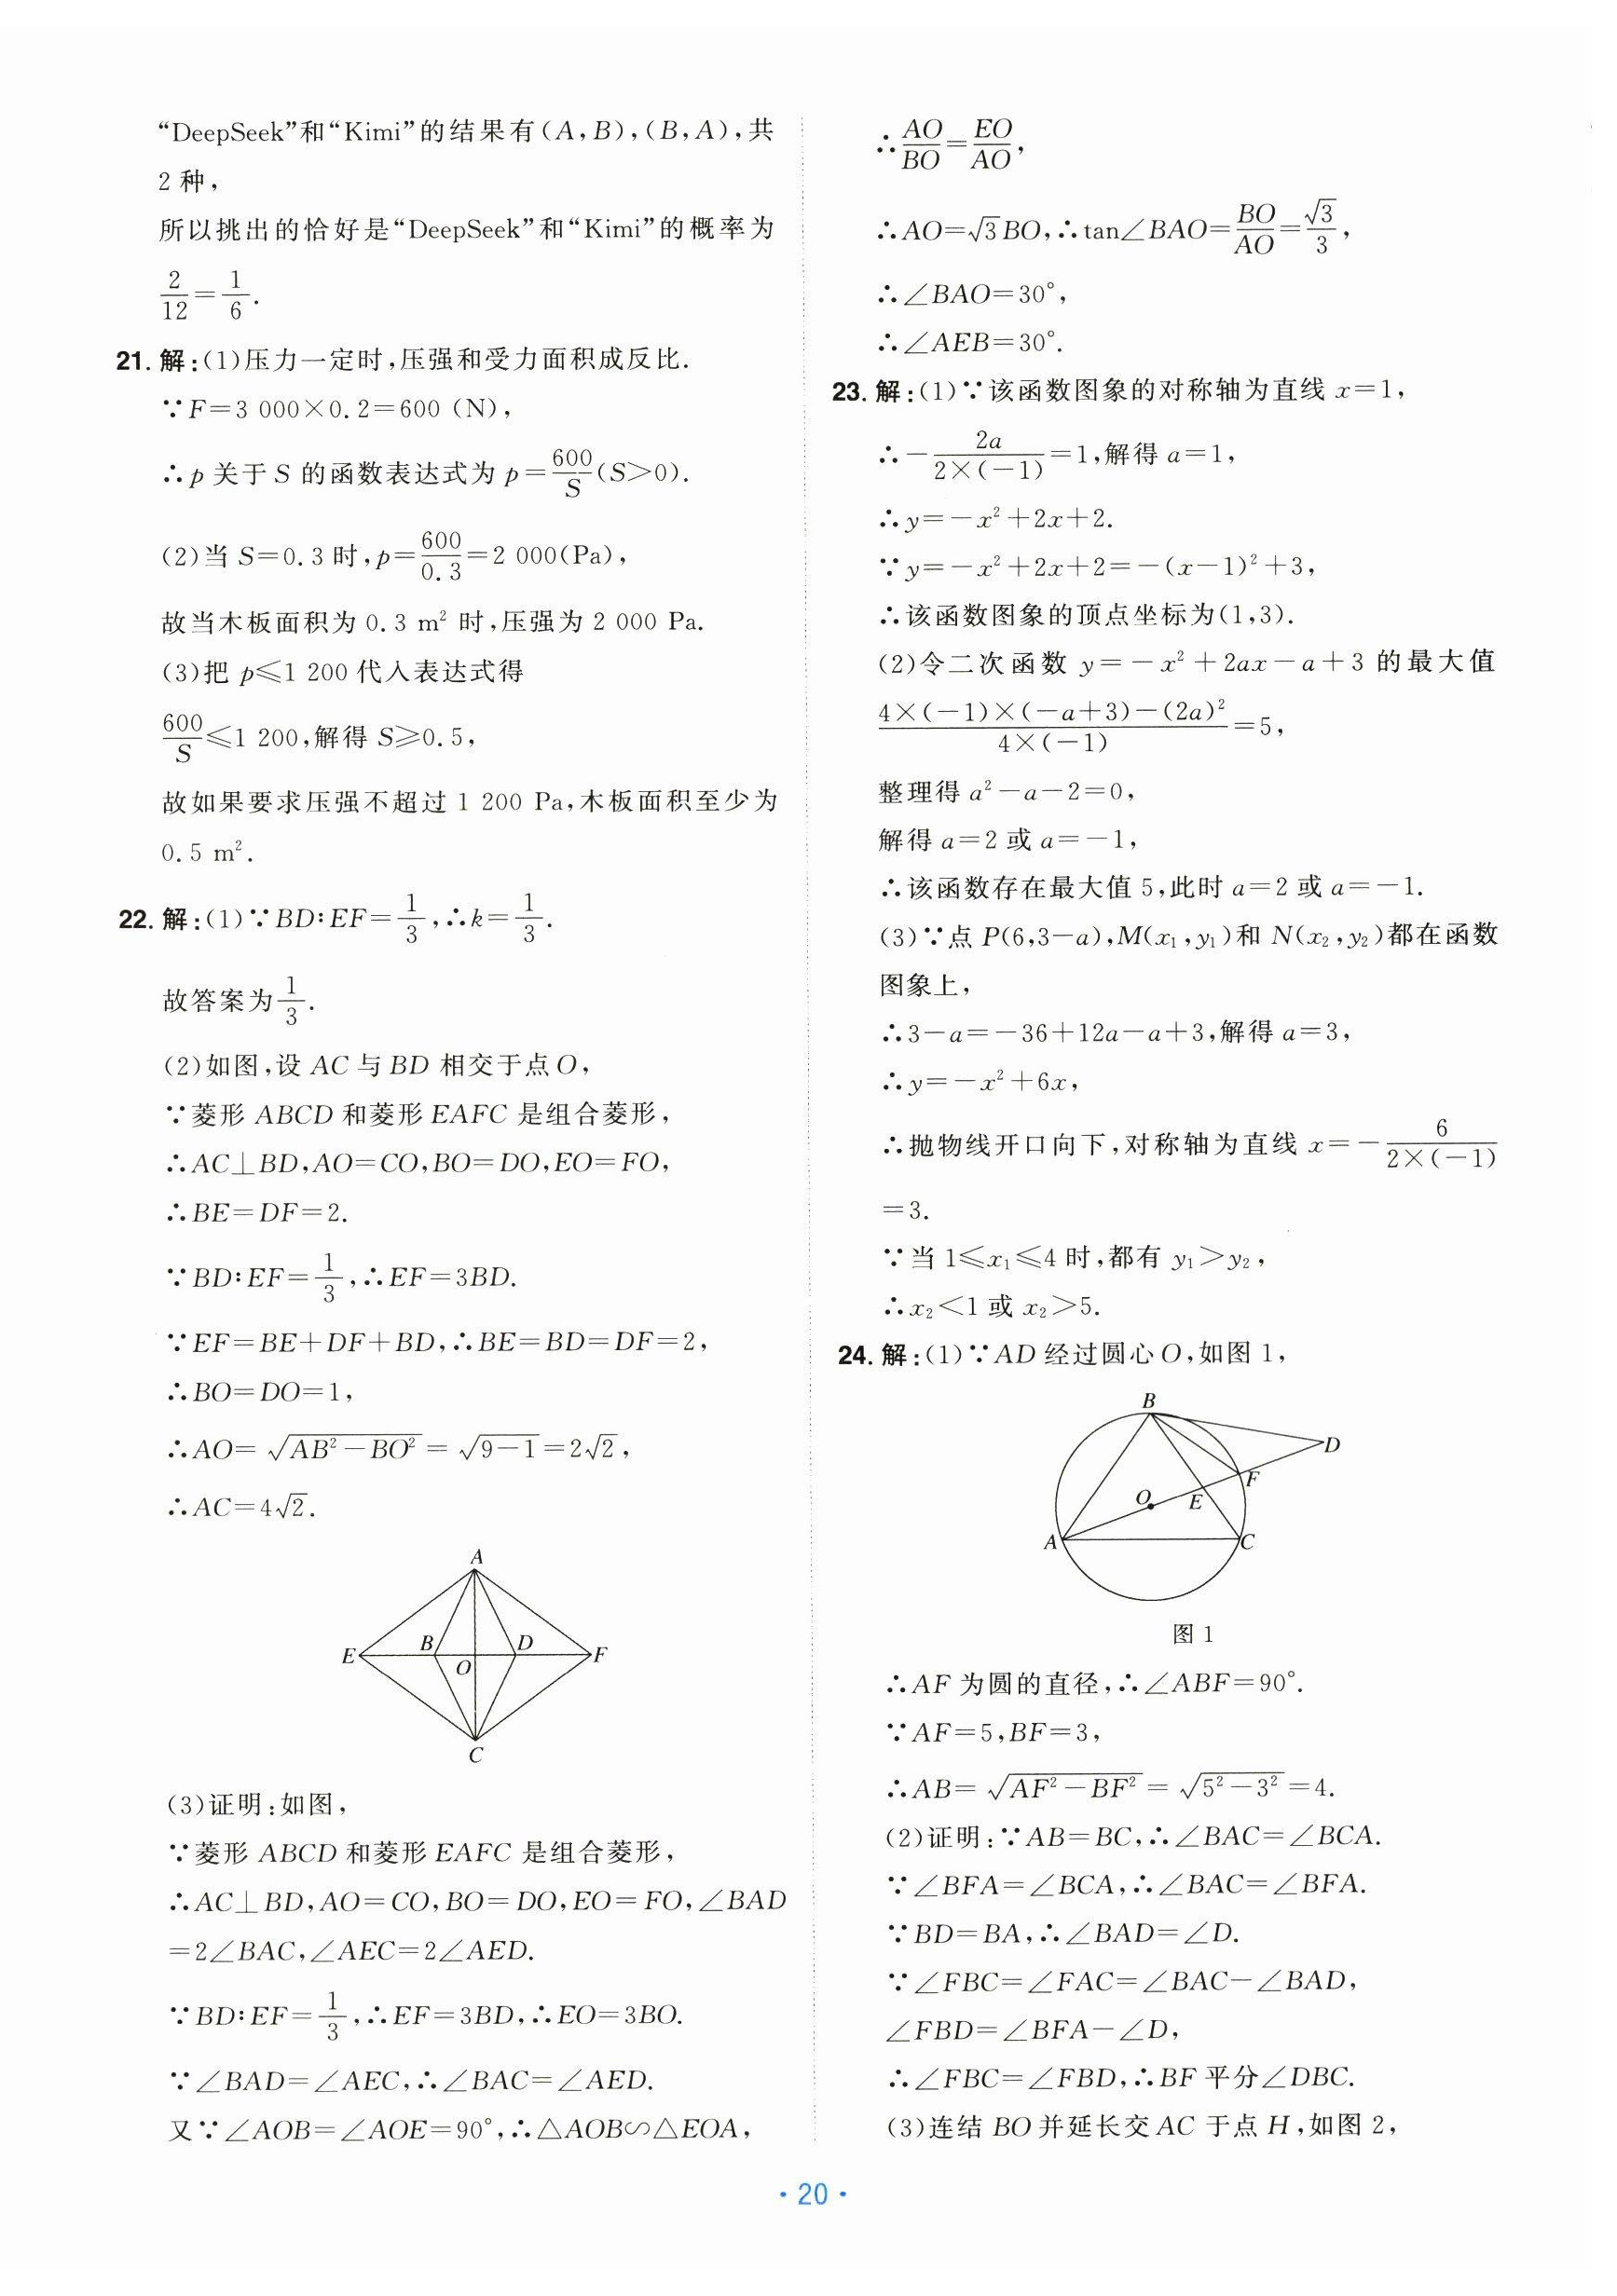 “DeepSeek”和“Kimi”的结果有(A,B),(B,A),共
2 种,
所以挑出的恰好是“DeepSeek”和“Kimi”的概率为
2/12=1/6.
21. 解:(1)压力一定时,压强和受力面积成反比.
∵F=3 000×0.2=600 (N),
∴p 关于 S 的函数表达式为 p=600/S(S>0).
(2)当 S=0.3 时,p=600/0.3=2 000(Pa),
故当木板面积为 0.3 m² 时,压强为 2 000 Pa.
(3)把 p≤1 200 代入表达式得
600/S≤1 200,解得 S≥0.5,
故如果要求压强不超过 1 200 Pa,木板面积至少为
0.5 m².
22. 解:(1)∵BD∶EF=1/3,∴k=1/3.
故答案为1/3.
(2)如图,设 AC 与 BD 相交于点 O,
∵菱形 ABCD 和菱形 EAFC 是组合菱形,
∴AC⊥BD,AO=CO,BO=DO,EO=FO,
∴BE=DF=2.
∵BD∶EF=1/3,∴EF=3BD.
∵EF=BE+DF+BD,∴BE=BD=DF=2,
∴BO=DO=1,
∴AO=√(AB²−BO²)=√(9−1)=2√2,
∴AC=4√2.
A
E
B
O
D
F
C
(3)证明:如图,
∵菱形 ABCD 和菱形 EAFC 是组合菱形,
∴AC⊥BD,AO=CO,BO=DO,EO=FO,∠BAD
=2∠BAC,∠AEC=2∠AED.
∵BD∶EF=1/3,∴EF=3BD,∴EO=3BO.
∵∠BAD=∠AEC,∴∠BAC=∠AED.
又∵∠AOB=∠AOE=90°,∴△AOB∽△EOA,
∴AO/BO=EO/AO,
∴AO=√3BO,∴tan∠BAO=BO/AO=√3/3,
∴∠BAO=30°,
∴∠AEB=30°.
23. 解:(1)∵该函数图象的对称轴为直线 x=1,
∴−2a/(2×(−1))=1,解得 a=1,
∴y=−x²+2x+2.
∵y=−x²+2x+2=−(x−1)²+3,
∴该函数图象的顶点坐标为(1,3).
(2)令二次函数 y=−x²+2ax−a+3 的最大值
(4×(−1)×(−a+3)−(2a)²)/(4×(−1))=5,
整理得 a²−a−2=0,
解得 a=2 或 a=−1,
∴该函数存在最大值 5,此时 a=2 或 a=−1.
(3)∵点 P(6,3−a),M(x₁,y₁)和 N(x₂,y₂)都在函数
图象上,
∴3−a=−36+12a−a+3,解得 a=3,
∴y=−x²+6x,
∴抛物线开口向下,对称轴为直线 x=−6/(2×(−1))
=3.
∵当 1≤x₁≤4 时,都有 y₁>y₂,
∴x₂<1 或 x₂>5.
24. 解:(1)∵AD 经过圆心 O,如图 1,
B
D
F
O
E
A
C
图 1
∴AF 为圆的直径,∴∠ABF=90°.
∵AF=5,BF=3,
∴AB=√(AF²−BF²)=√(5²−3²)=4.
(2)证明:∵AB=BC,∴∠BAC=∠BCA.
∵∠BFA=∠BCA,∴∠BAC=∠BFA.
∵BD=BA,∴∠BAD=∠D.
∵∠FBC=∠FAC=∠BAC−∠BAD,
∠FBD=∠BFA−∠D,
∴∠FBC=∠FBD,∴BF 平分∠DBC.
(3)连结 BO 并延长交 AC 于点 H,如图 2,
· 20 ·